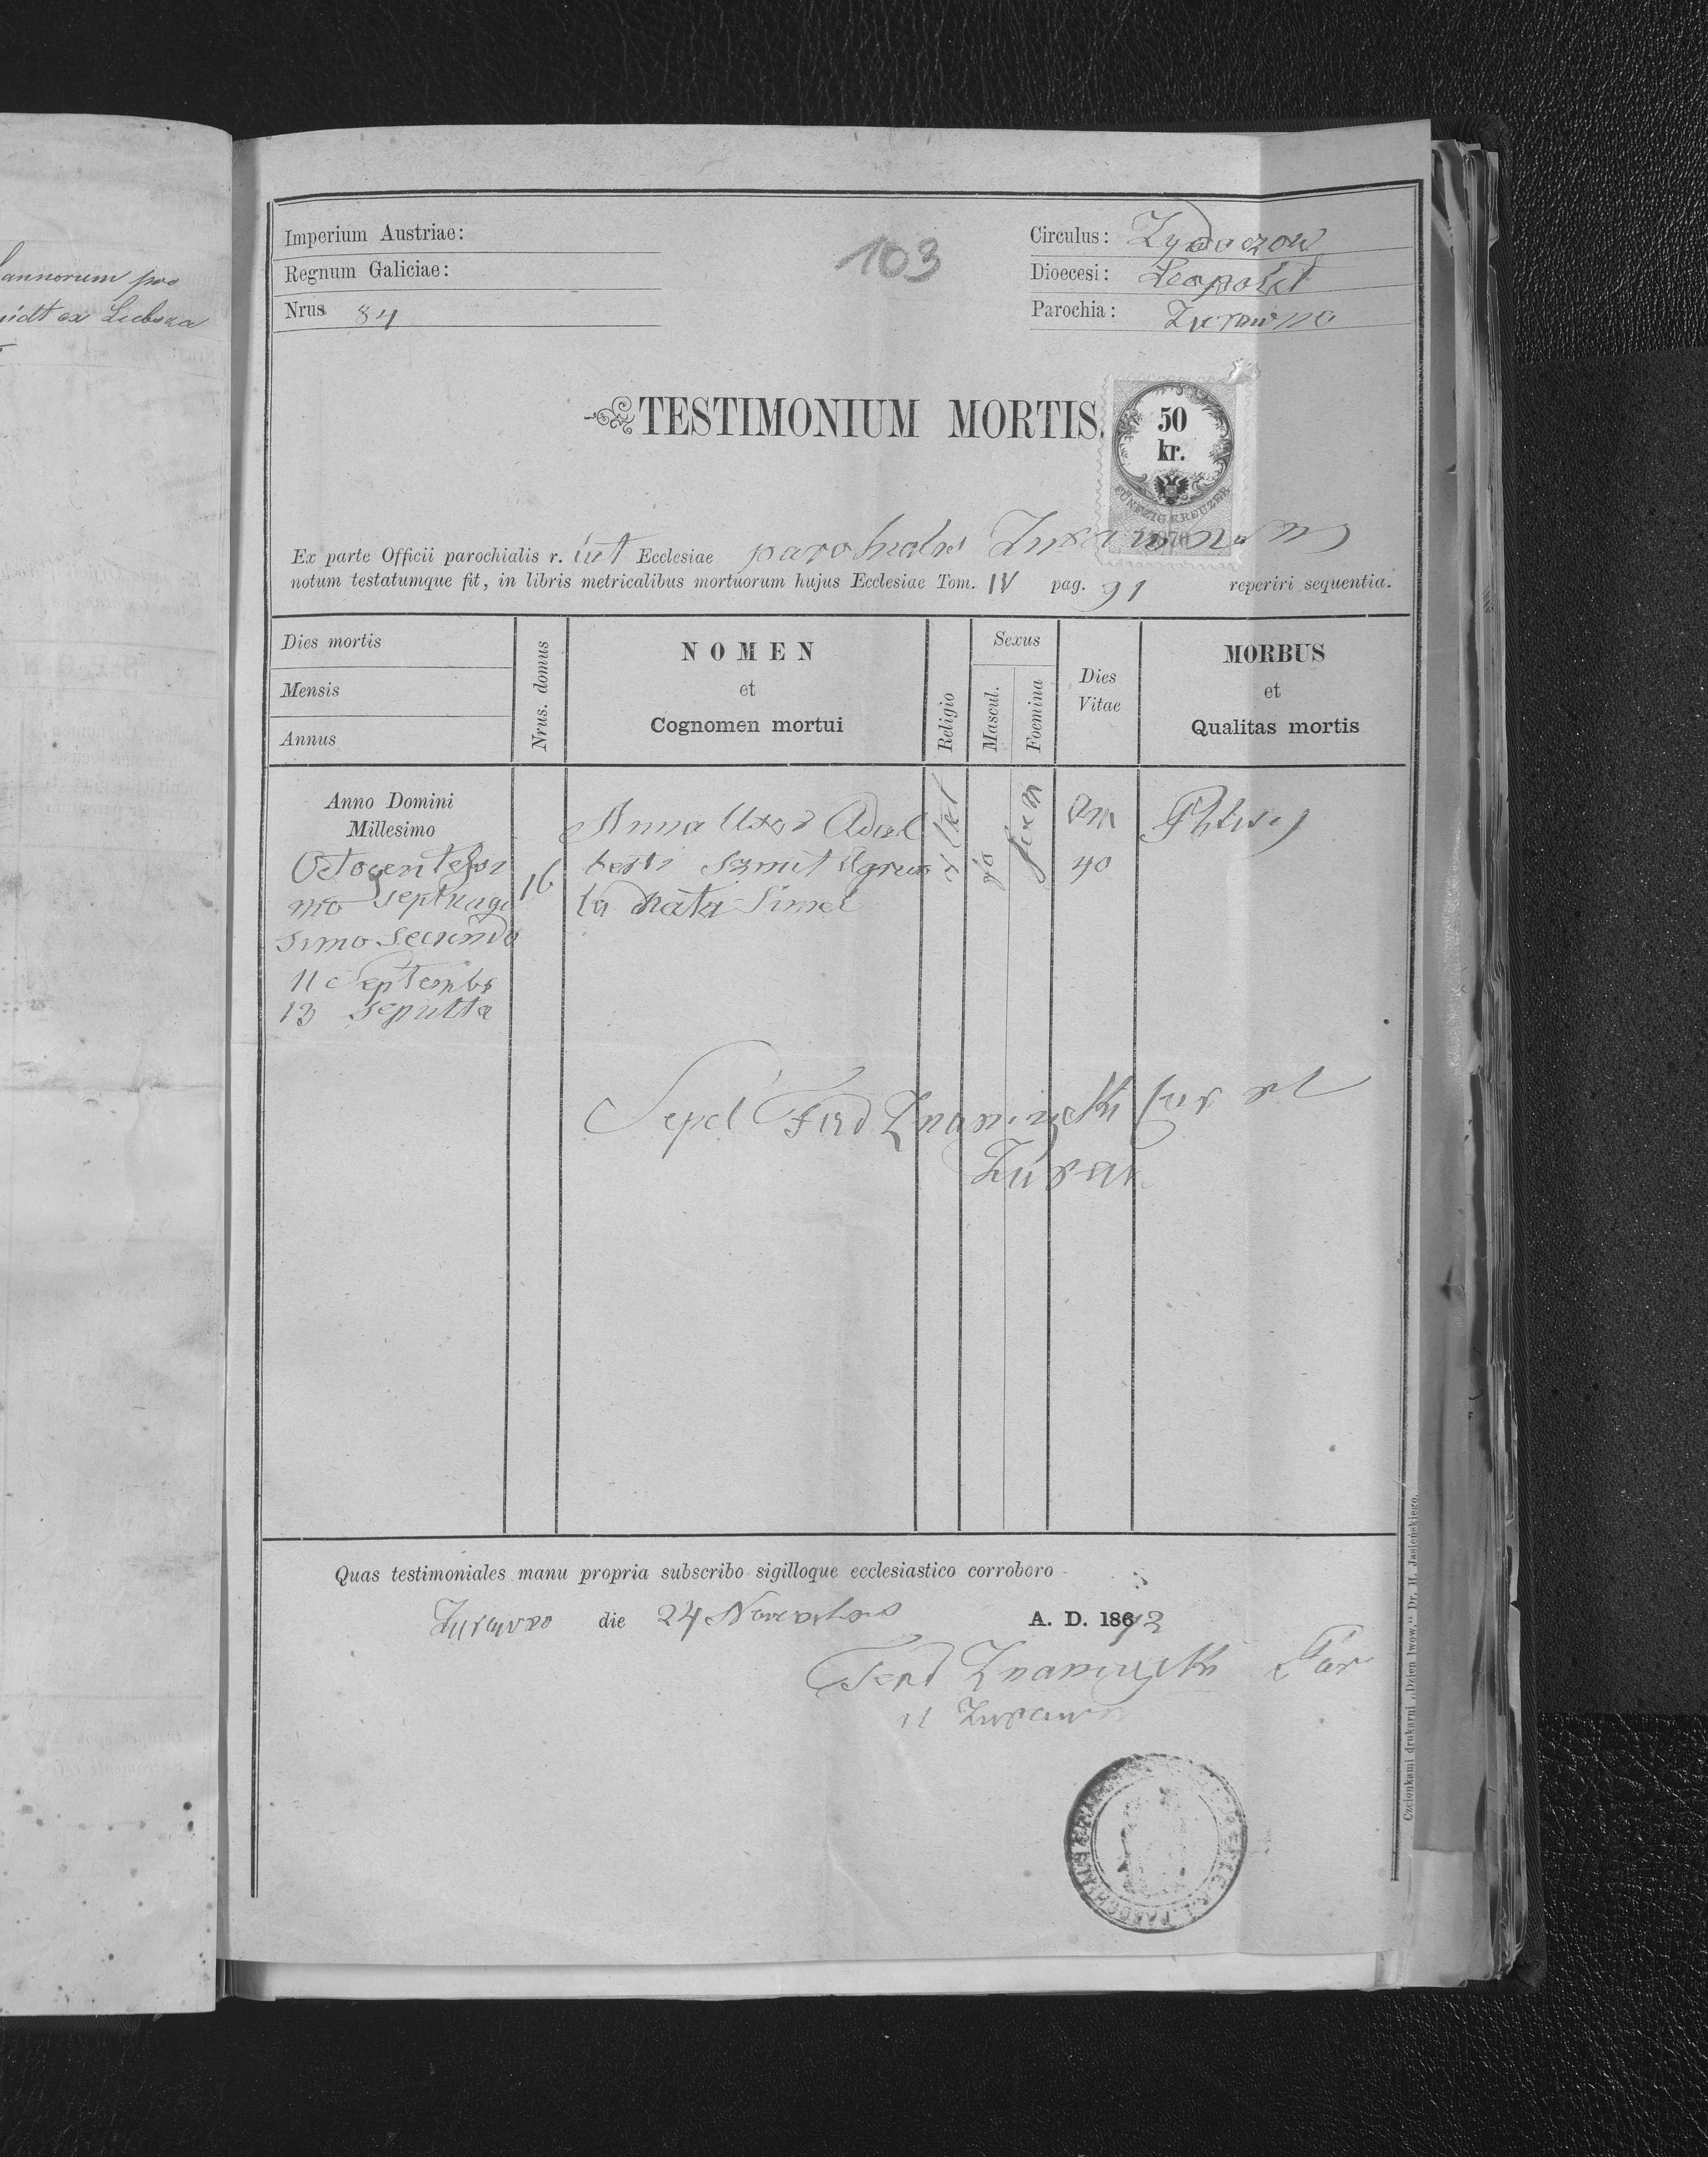 annorum pro
idt ex Lubsza
Imperium Austriae:
Regnum Galiciae:
Nrus 84
103
Circulus: Zydaczow
Dioecesi: Leopolit
Parochia: Zurawno
TESTIMONIUM MORTIS.
50
kr.
FÜNFZIG KREUZER
1870
Ex parte Officii parochialis r. lat Ecclesiae parochialis
notum testatumque fit, in libris metricalibus mortuorum hujus Ecclesiae Tom. IV pag. 91 reperiri sequentia.
Dies mortis
Mensis
Annus
Nrus. domus
NOMEN
et
Cognomen mortui
Religio
Sexus
Mascul.
Foemina
Dies
Vitae
MORBUS
et
Qualitas mortis
Anno Domini
Millesimo
Octocentesi
mo septuage
simo secundo
11 Septembr
13 sepulta
16
Anna Uxor Adal
berti Szmit Agrico
la nata Simel
r lat
foem
an
40
Phtisis
Sepel Ferd Znamirowski
Zuraw
Quas testimoniales manu propria subscribo sigilloque ecclesiastico corroboro
Zurawno die 24 Novembris A. D. 1872
Ferd Znamirowski Par
Zurawn
Czcionkami drukarni „Dzien lwow." Dr. H. Jasieńskiego.